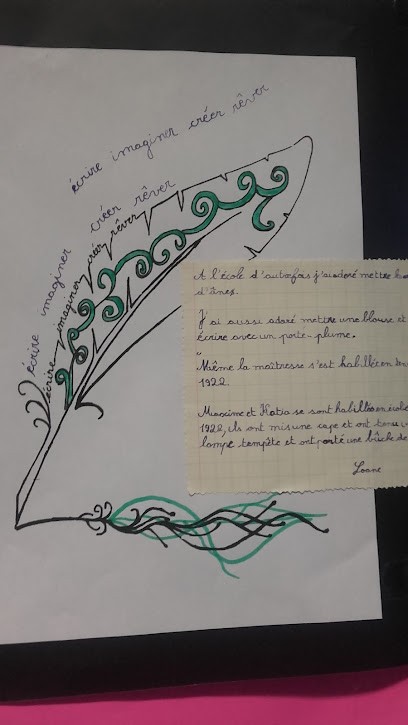 écrire imaginer créer rêver
écrire imaginer créer rêver
écrire imaginer créer rêver
A l'école d'autrefois j'ai adoré mettre
d'ânes.
J'ai aussi adoré mettre une blouse et
écrire avec un porte-plume.
Même la maîtresse s'est habillée en
1922.
Maxime et Katia se sont habillés en école
1922, ils ont mis une cape et ont tenu
lampe tempête et ont porté une bûche de
Loane